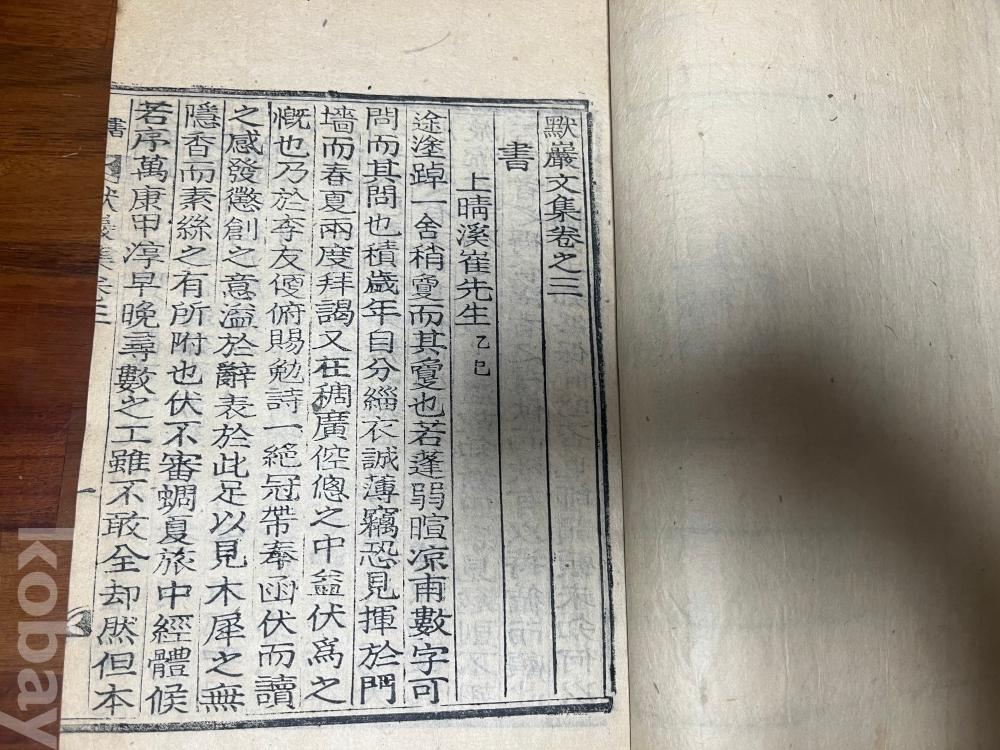 默巖文集卷之三
書
上晴溪崔先生 乙巳
途塗踔一舍稍敻而其敻也若蓬弱暄凉南數字可
問而其問也積歲年自分緇衣誠薄竊恐見揮於門
墻而春夏兩度拜謁又在稠廣倥傯之中益伏爲之
慨也乃於李友便俯賜勉詩一絶冠帶奉函伏而讀
之感發懲創之意溢於辭表於此足以見木犀之無
隱香而素絲之有所附也伏不審蜩夏旅中經體候
若序萬康甲淳早晩尋數之工雖不敢全却然但本
書
一
kobay